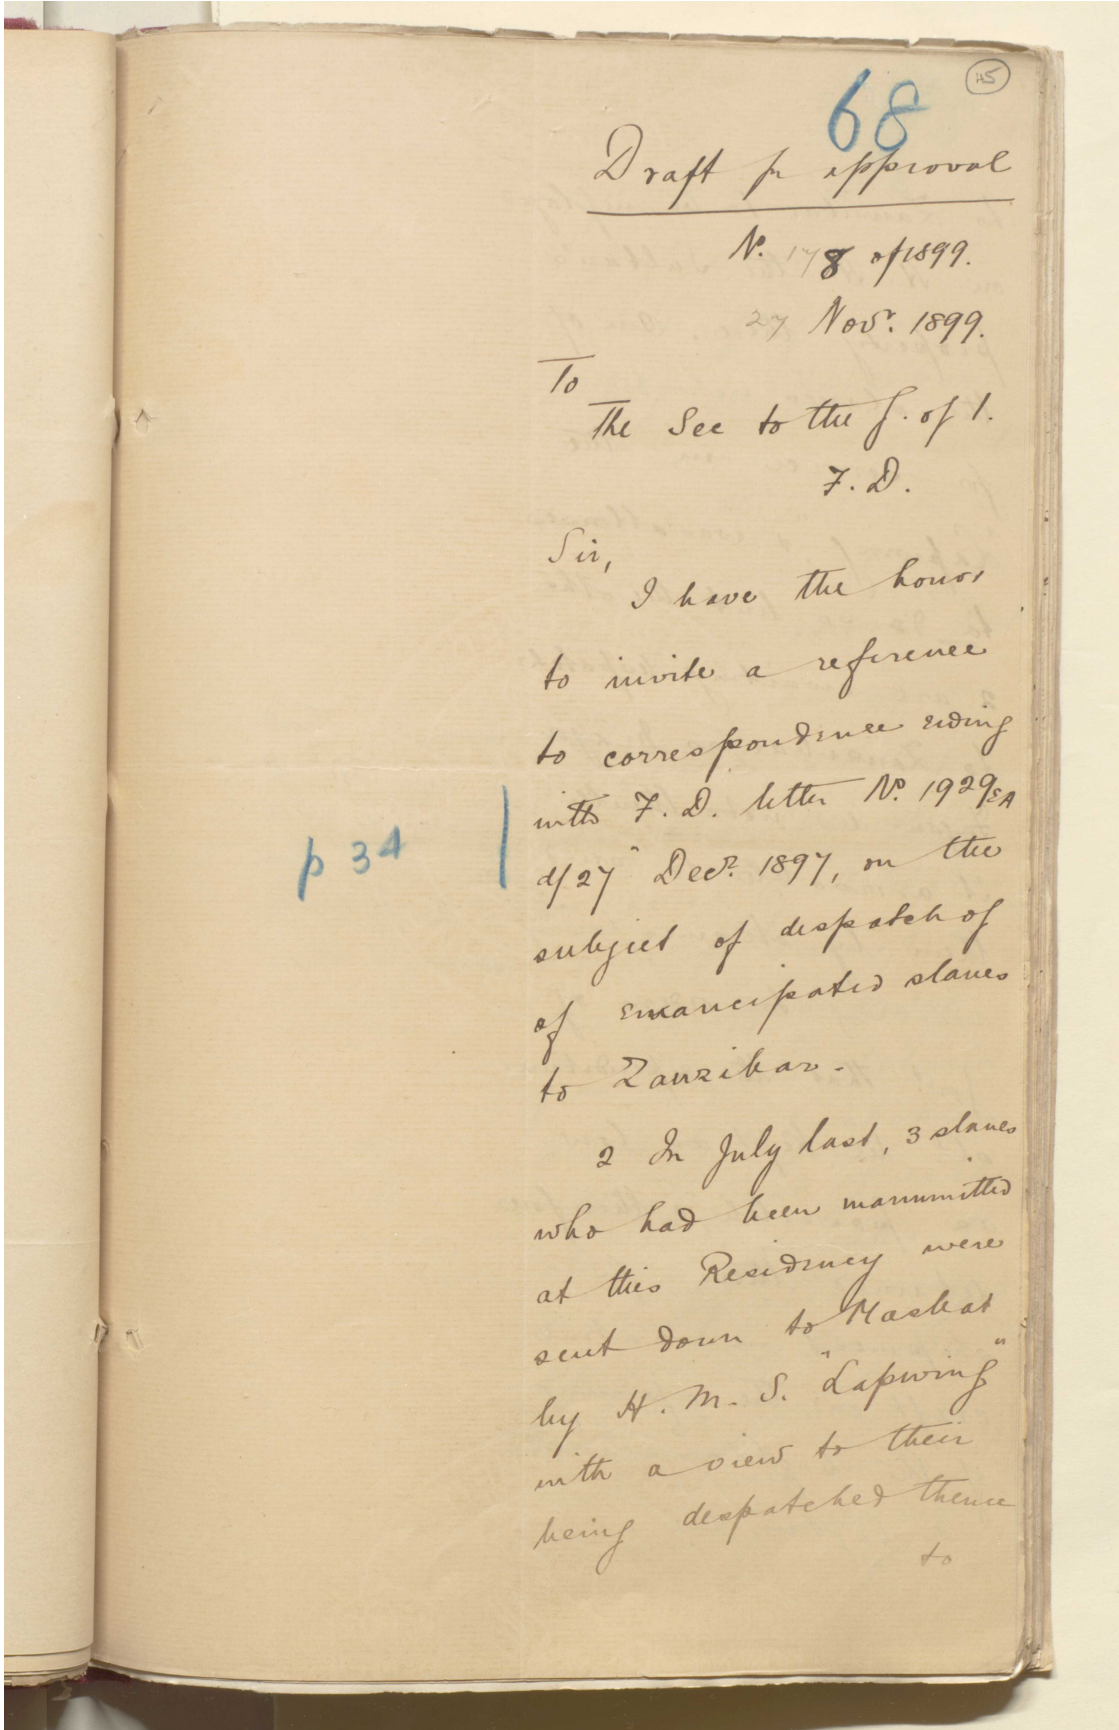 45
68
Draft for approval
No. 178 of 1899.
27 Novr. 1899.
To
The Sec to the G. of I.
F. D.
Sir,
I have the honor
to invite a reference
to correspondence ending
with F. D. letter No. 1929 EA
p 34
d/27" Decr. 1897, on the
subject of despatch of
of emancipated slaves
to Zanzibar.
2 In July last, 3 slaves
who had been manumitted
at this Residency were
sent down to Maskat
by H. M. S. "Lapwing"
with a view to their
being despatched thence
to